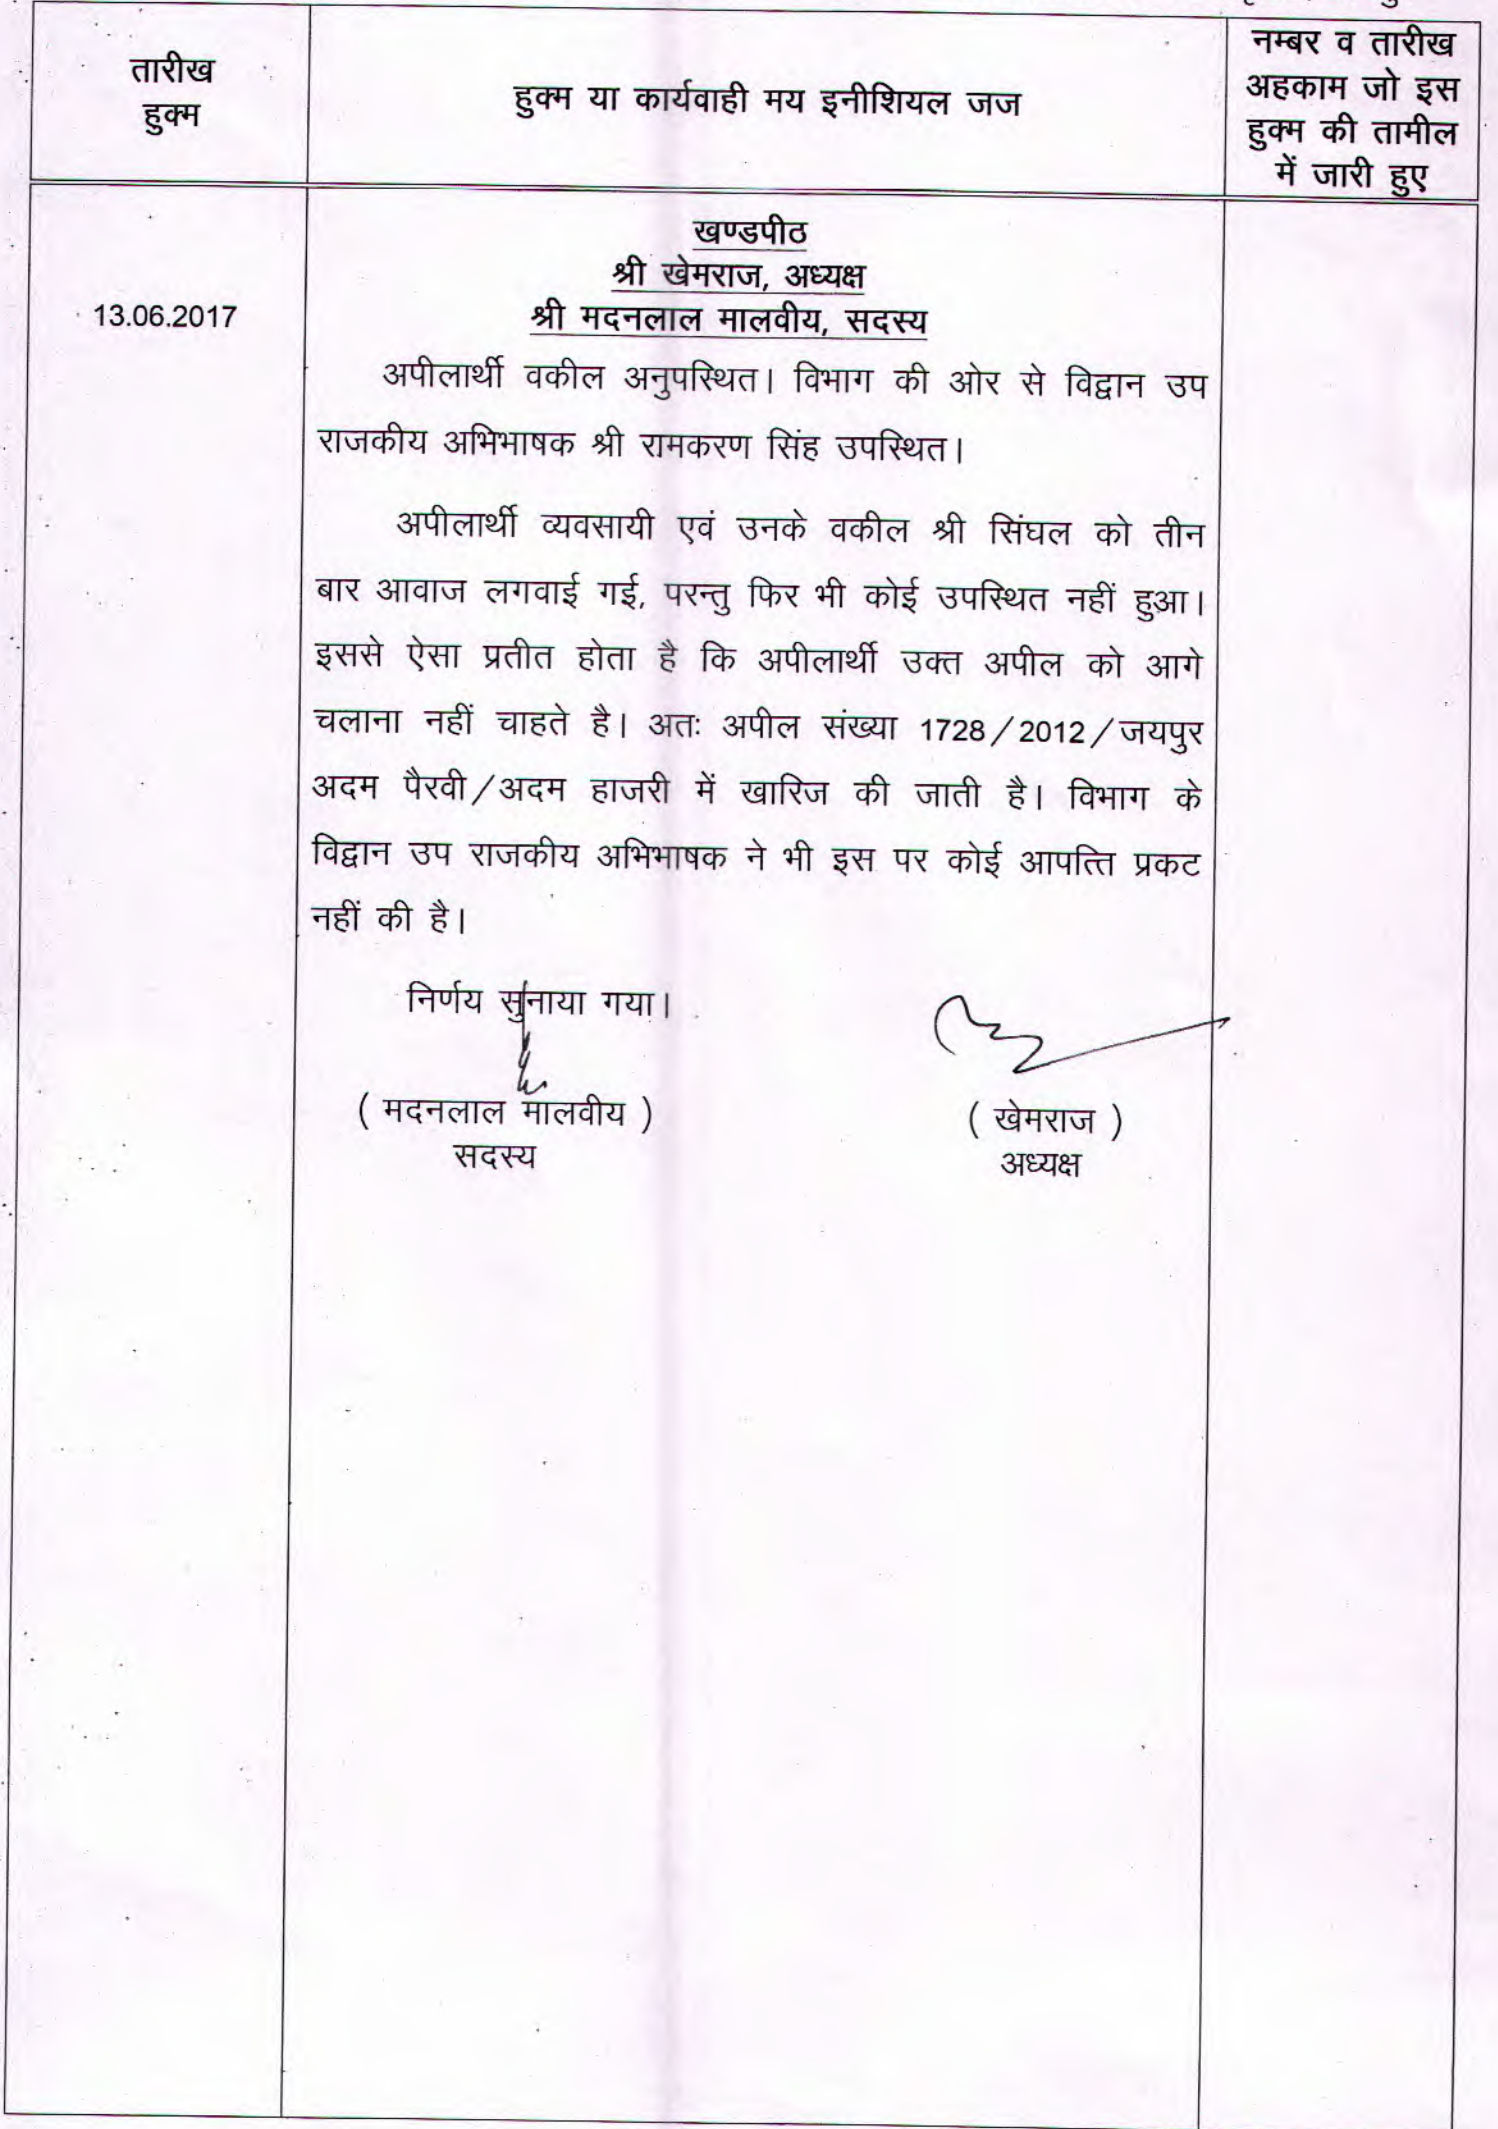 तारीख
हुक्म
हुक्म या कार्यवाही मय इनीशियल जज
नम्बर व तारीख
अहकाम जो इस
हुक्म की तामील
में जारी हुए
13.06.2017
खण्डपीठ
श्री खेमराज, अध्यक्ष
श्री मदनलाल मालवीय, सदस्य
अपीलार्थी वकील अनुपस्थित। विभाग की ओर से विद्वान उप
राजकीय अभिभाषक श्री रामकरण सिंह उपस्थित।
अपीलार्थी व्यवसायी एवं उनके वकील श्री सिंघल को तीन
बार आवाज लगवाई गई, परन्तु फिर भी कोई उपस्थित नहीं हुआ।
इससे ऐसा प्रतीत होता है कि अपीलार्थी उक्त अपील को आगे
चलाना नहीं चाहते है। अतः अपील संख्या 1728/2012/जयपुर
अदम पैरवी/अदम हाजरी में खारिज की जाती है। विभाग के
विद्वान उप राजकीय अभिभाषक ने भी इस पर कोई आपत्ति प्रकट
नहीं की है।
निर्णय सुनाया गया।
( मदनलाल मालवीय )
सदस्य
( खेमराज )
अध्यक्ष